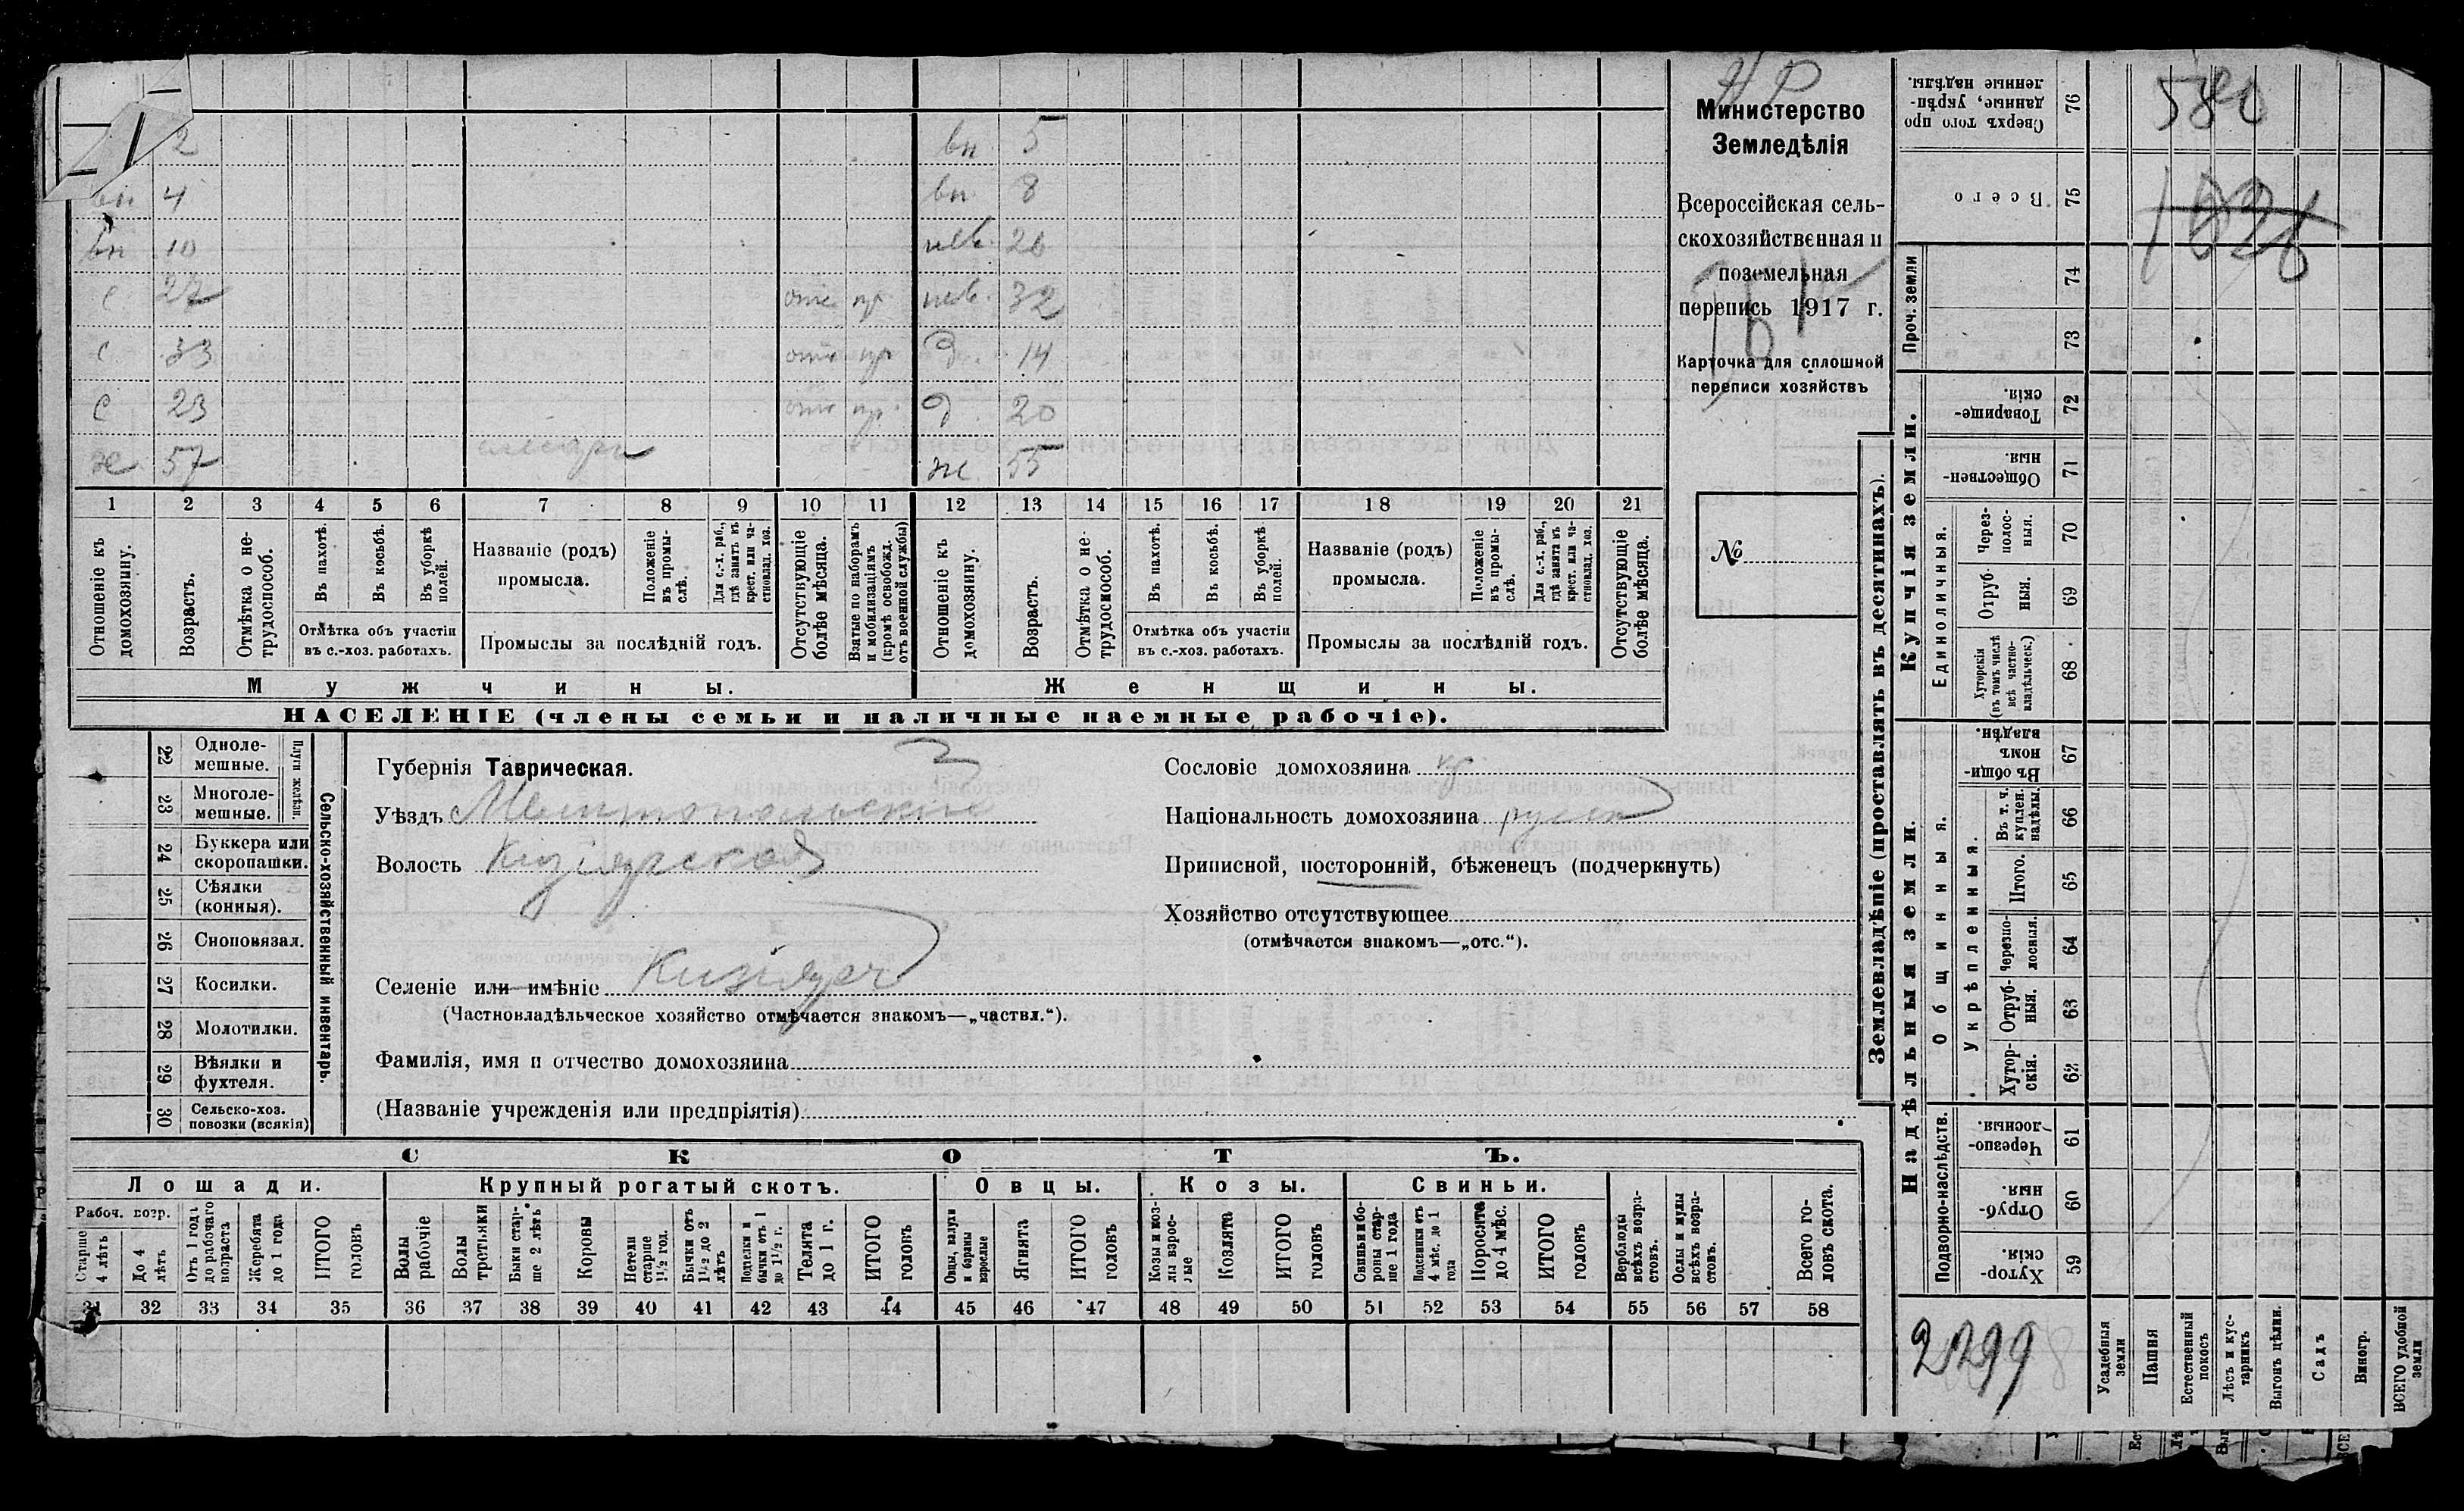 2 вн 5
вн 4 вн 8
вн 10 нев. 26
с 27 отс пр нев. 32
с 33 отс пр д. 14
с 23 отс пр д. 20
х 57 слесарь ж 55
1 2 3 4 5 6 7 8 9 10 11 12 13 14 15 16 17 18 19 20 21
Отношеніе къ домохозяину.
Возрастъ.
Отмѣтка о нетрудоспособ.
Въ пахотѣ.
Въ косьбѣ.
Въ уборкѣ полей.
Отмѣтка объ участіи въ с.-хоз. работахъ.
Названіе (родъ) промысла.
Положеніе въ промыслѣ.
Для с.-х. раб., гдѣ занятъ въ крест. или частновлад. хоз.
Промыслы за послѣдній годъ.
Отсутствующіе болѣе мѣсяца.
Взятые по наборамъ и мобилизаціямъ (кромѣ освобожд. отъ военной службы)
Отношеніе къ домохозяину.
Возрастъ.
Отмѣтка о нетрудоспособ.
Въ пахотѣ.
Въ косьбѣ.
Въ уборкѣ полей.
Отмѣтка объ участіи въ с.-хоз. работахъ.
Названіе (родъ) промысла.
Положеніе въ промыслѣ.
Для с.-х. раб., гдѣ занята въ крест. или частновлад. хоз.
Промыслы за послѣдній годъ.
Отсутствующіе болѣе мѣсяца.
Мужчины. Женщины.
НАСЕЛЕНІЕ (члены семьи и наличные наемные рабочіе).
Министерство
Земледѣлія
Всероссійская сель-
скохозяйственная и
поземельная
перепись 1917 г.
Карточка для сплошной
переписи хозяйствъ
№
22 Однолемешные.
23 Многолемешные.
Плуги желѣзн.
24 Буккера или скоропашки.
25 Сѣялки (конныя).
26 Сноповязал.
27 Косилки.
28 Молотилки.
29 Вѣялки и фухтеля.
30 Сельско-хоз. повозки (всякія)
Сельско-хозяйственный инвентарь.
Губернія Таврическая. 3
Уѣздъ Мелитопольскій
Волость Кизіярская
Селеніе или имѣніе Кизіяръ
(Частновладѣльческое хозяйство отмѣчается знакомъ—„частвл.“).
Фамилія, имя и отчество домохозяина
(Названіе учрежденія или предпріятія)
Сословіе домохозяина кр
Національность домохозяина русск
Приписной, посторонній, бѣженецъ (подчеркнуть)
Хозяйство отсутствующее
(отмѣчается знакомъ—„отс.“).
СКОТЪ.
Лошади. Крупный рогатый скотъ. Овцы. Козы. Свиньи.
Рабоч. возр.
Старше 4 лѣтъ
До 4 лѣтъ
Отъ 1 года до рабочаго возраста
Жеребята до 1 года
ИТОГО головъ
Волы рабочіе
Волы третьяки
Быки старше 2 лѣтъ
Коровы
Нетели старше 1½ год.
Бычки отъ 1½ до 2 лѣтъ
Подтелки и бычки отъ 1 до 1½ г.
Телята до 1 г.
ИТОГО головъ
Овцы, валухи и бараны взрослые
Ягнята
ИТОГО головъ
Козы и козлы взрослые
Козлята
ИТОГО головъ
Свиньи и боровы старше 1 года
Подсвинки отъ 4 мѣс. до 1 года
Поросята до 4 мѣс.
ИТОГО головъ
Верблюды всѣхъ возрастовъ.
Ослы и мулы всѣхъ возрастовъ.
Всего головъ скота.
31 32 33 34 35 36 37 38 39 40 41 42 43 44 45 46 47 48 49 50 51 52 53 54 55 56 57 58
Землевладѣніе (проставлять въ десятинахъ).
Купчія земли.
Надѣльныя земли.
76 Сверхъ того проданные, укрѣпленные надѣлы.
580
75 Всего
1826
Проч. земли
74
73
72 Товарищескія.
71 Общественныя.
Единоличныя.
70 Черезполосныя.
69 Отрубныя.
68 Хуторскія (въ томъ числѣ всѣ частновладѣльческ.)
Общинныя.
67 Въ общинномъ владѣн.
Укрѣпленныя.
66 Въ т. ч. куплен. надѣлы.
65 Итого.
64 Черезполосныя.
63 Отрубныя.
62 Хуторскія.
Подворно-наслѣдств.
61 Черезполосныя.
60 Отрубныя.
59 Хуторскія.
2299
Усадебныя земли
Пашня
Естественный покосъ
Лѣсъ и кустарникъ
Выгонъ цѣлин.
Садъ
Виногр.
ВСЕГО удобной земли